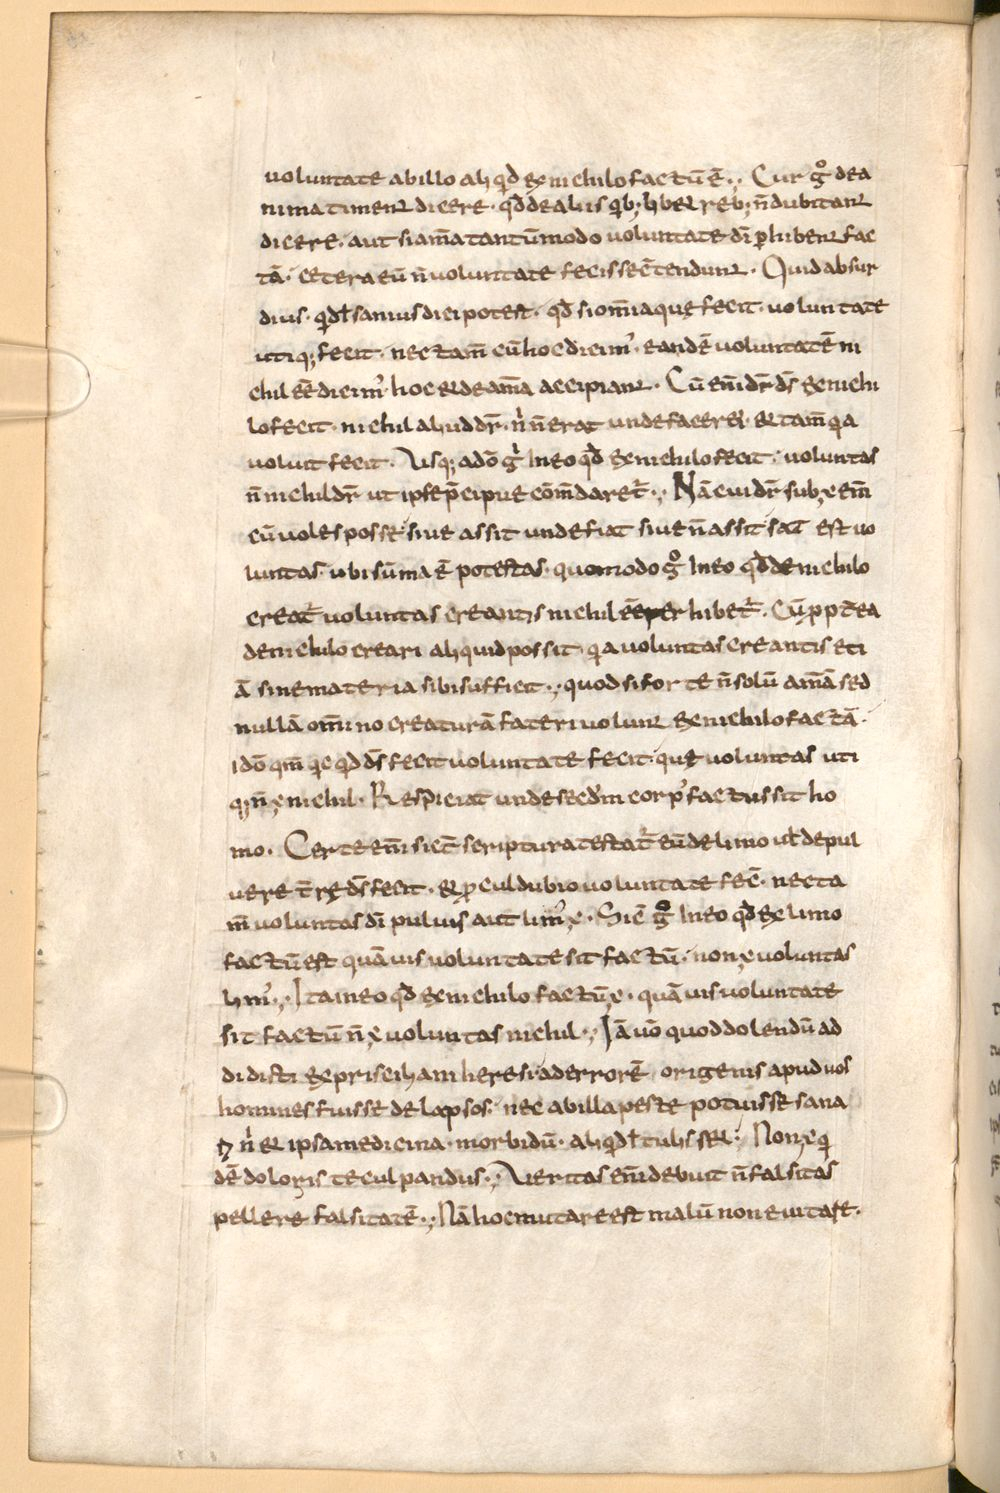 voluntate ab illo aliqd ex nichilo factū ē. Cur gͦ de a
nima timent dicere. qd̄ de aliis qb; liber reb; n̄ dubitant
dicere. aut si am̄a tantūmodo voluntate dī phibent fac
tā. cetera eū n̄ voluntate fecisse ctendunt. Quid absur
dius. qd insanius dici potest. qd̄ si om̄ia que fecit. voluntate
utiq; fecit. nec tam̄ cū hoc dicim'. eandē voluntatē ni
chil eē dicim'. hoc et de am̄a accipiant. Cū eni dr̄ ds̄ ex nichi
lo fecit. nichil aliud dr̄. n n̄ erat unde faceret. et tam̄ qa
voluit fecit. Usq; adō g in eo qd̄ ex nichilo fecit. voluntas
n̄ nichil dr̄ ut ipse p̄cipue com̄daret̄. Nā cui dr̄ sub ē em̄
cū voles posse sive assit unde fiat sive n̄ assit sat̄ est vo
luntas. ubi sūma ē potestas. quomodo gͦ in eo qd̄ de nichilo
creat̄ voluntas creantis nichil eē perhibet̄. Cū pp̄ea
de nichilo creari aliquid possit. qa voluntas creantis eti
ā sine materia sibi sufficit. quod si forte n̄ solū am̄ā sed
nullā om̄ino creaturā fateri volunt ex nichilo factā.
idō qm̄ qc qd ds̄ fecit voluntate fecit. que voluntas uti
q; n̄ ē nichil. Respiciat unde secdm corp' factus sit ho
mo. Certe em̄ sic̄ scriptura testat̄ eū de limo vl̄ de pul
vere t̄re ds̄ fecit. et pcul dubio voluntate fec̄. nec ta
m̄ voluntas dī pulvis aut lim' ē. Sic̄ gͦ in eo qd̄ ex limo
factū est quāvis voluntate sit factū. non ē voluntas
lim'. Ita in eo qd̄ ex nichilo factū ē. quāvis voluntate
sit factū n̄ ē voluntas nichil. Iā vō quod dolendū ad
didisti ex prisciliani heresi ad errorē origenis apud vos
homines fuisse delapsos. nec ab illa peste potuisse sana
ri n et ipsa medicina. morbidū. aliqd tulisset. Non ē q
dē doloris te culpandus. Veritas em̄ debuit n̄ falsitas
pellere falsitatē. Nā hoc mutare est malū non evitare.